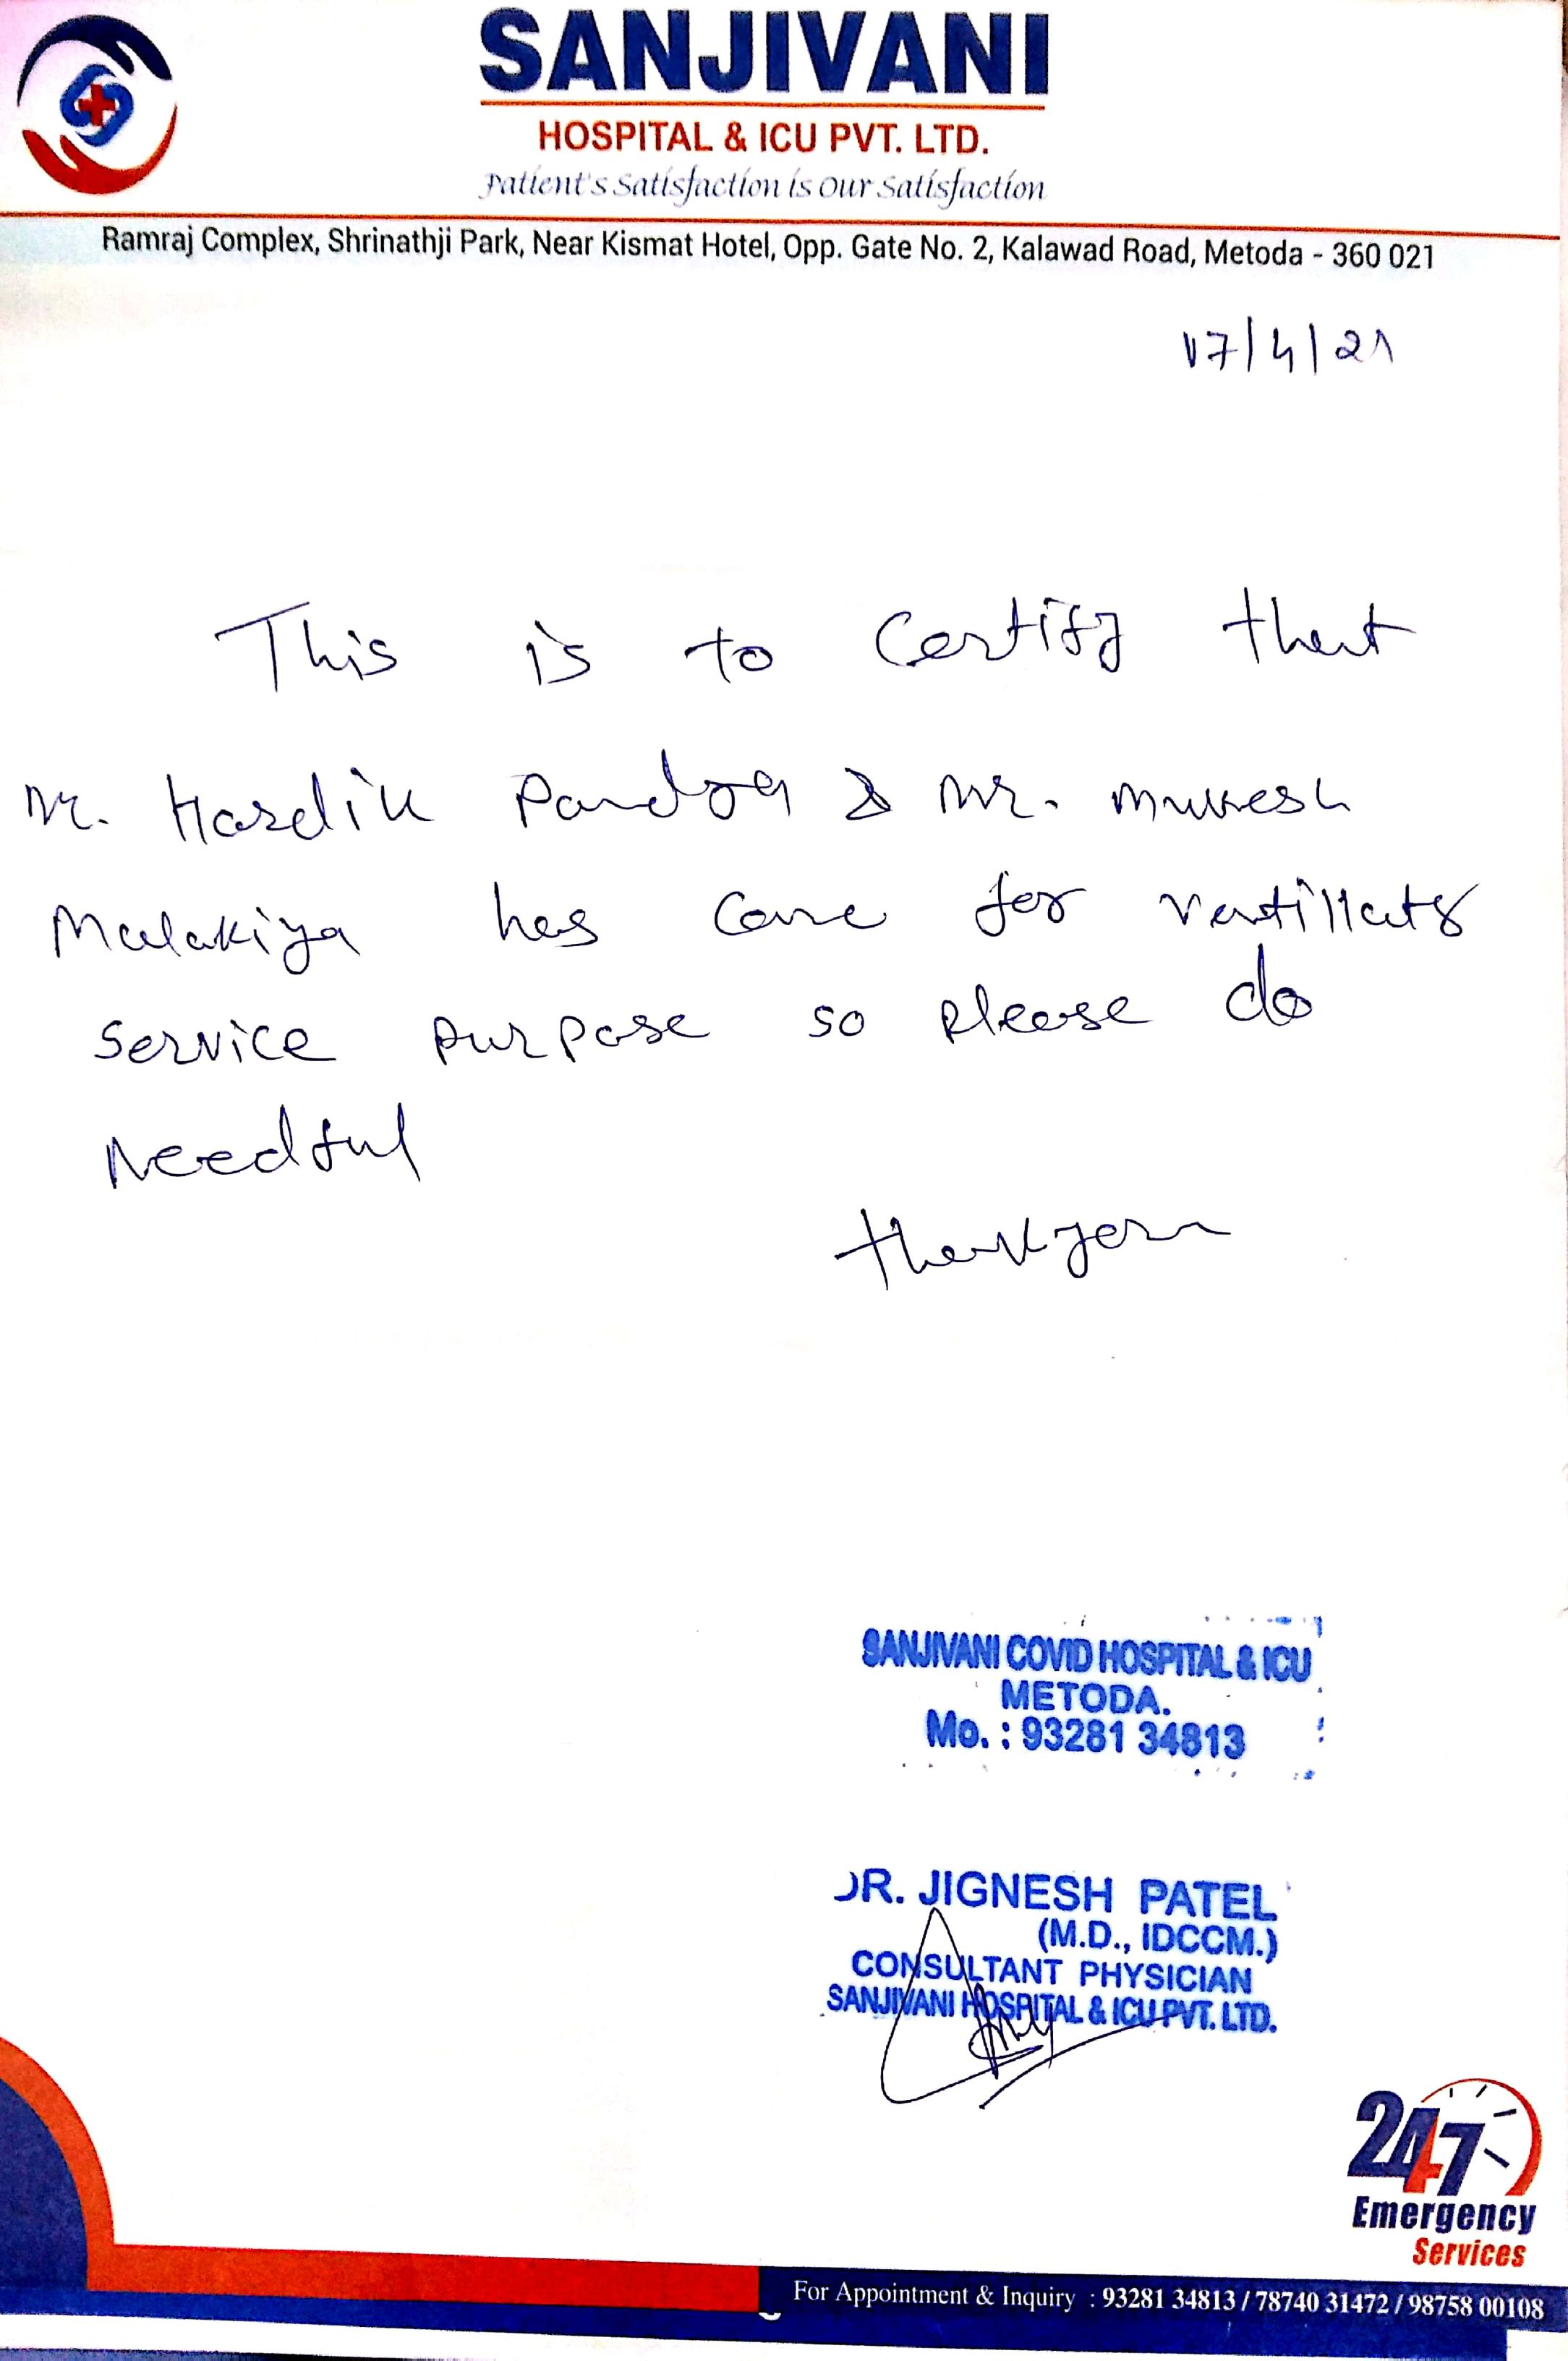 SANJIVANI
HOSPITAL & ICU PVT. LTD.
Patient's Satisfaction is Our Satisfaction
Ramraj Complex, Shrinathji Park, Near Kismat Hotel, Opp. Gate No. 2, Kalawad Road, Metoda - 360 021
17/4/21
This is to certify that
Mr. Hardik Pandya & Mr. Mukesh
Malakiya has come for ventillator
service purpose so please do
Needful
thank you
SANJIVANI COVID HOSPITAL & ICU
METODA.
Mo. : 93281 34813
DR. JIGNESH PATEL
(M.D., IDCCM.)
CONSULTANT PHYSICIAN
SANJIVANI HOSPITAL & ICU PVT. LTD.
24x7
Emergency
Services
For Appointment & Inquiry : 93281 34813 / 78740 31472 / 98758 00108